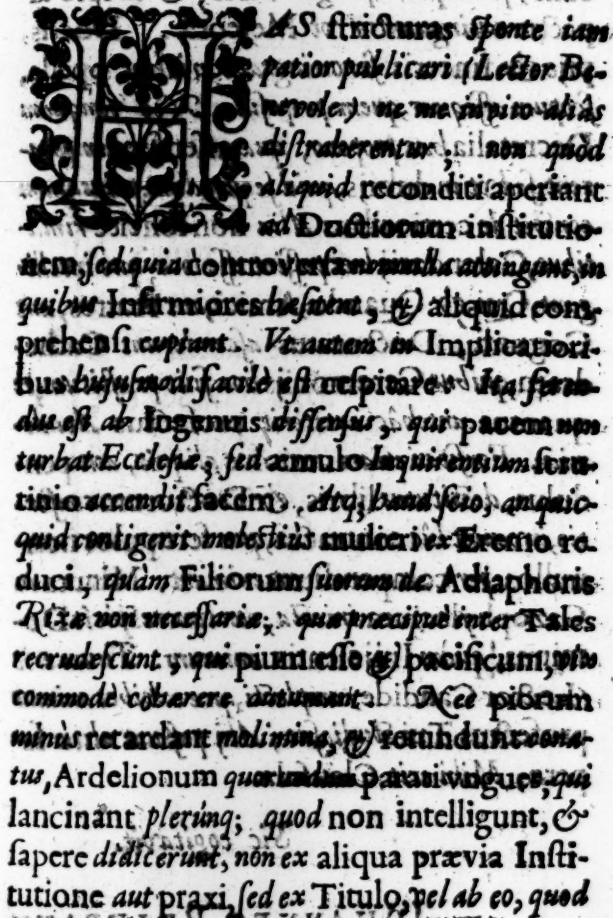 HAS stricturas sponte iam
patior publicari (Lector Be-
nevole) ne me invito aliàs
distraherentur, non quòd
aliquid reconditi aperiant
ad Doctiorum institutio-
nem, sed quia controversa nonnulla attingunt, in
quibus Infirmiores hæsitent, & aliquid com-
prehensi cupiant. Vt autem in Implicatiori-
bus hujusmodi facilè est cespitare: Ita feren-
dus est ab Ingenuis dissensus, qui pacem non
turbat Ecclesiæ, sed æmulo Inquirentium scru-
tinio accendit facem. Atq; haud scio, an quic-
quid contigerit molestiùs mulieri ex Eremo re-
duci, quàm Filiorum suorum de Adiaphoris
Rixæ non necessariæ; quæ præcipuè inter Tales
recrudescunt, qui pium esse & pacificum, vix
commodè cohærere autumant. Nec piorum
minùs retardant molimina, & retundunt cona-
tus, Ardelionum quorundam parati vngues, qui
lancinant plerúnq; quod non intelligunt, &
sapere didicerunt, non ex aliqua prævia Insti-
tutione aut praxi, sed ex Titulo, vel ab eo, quod